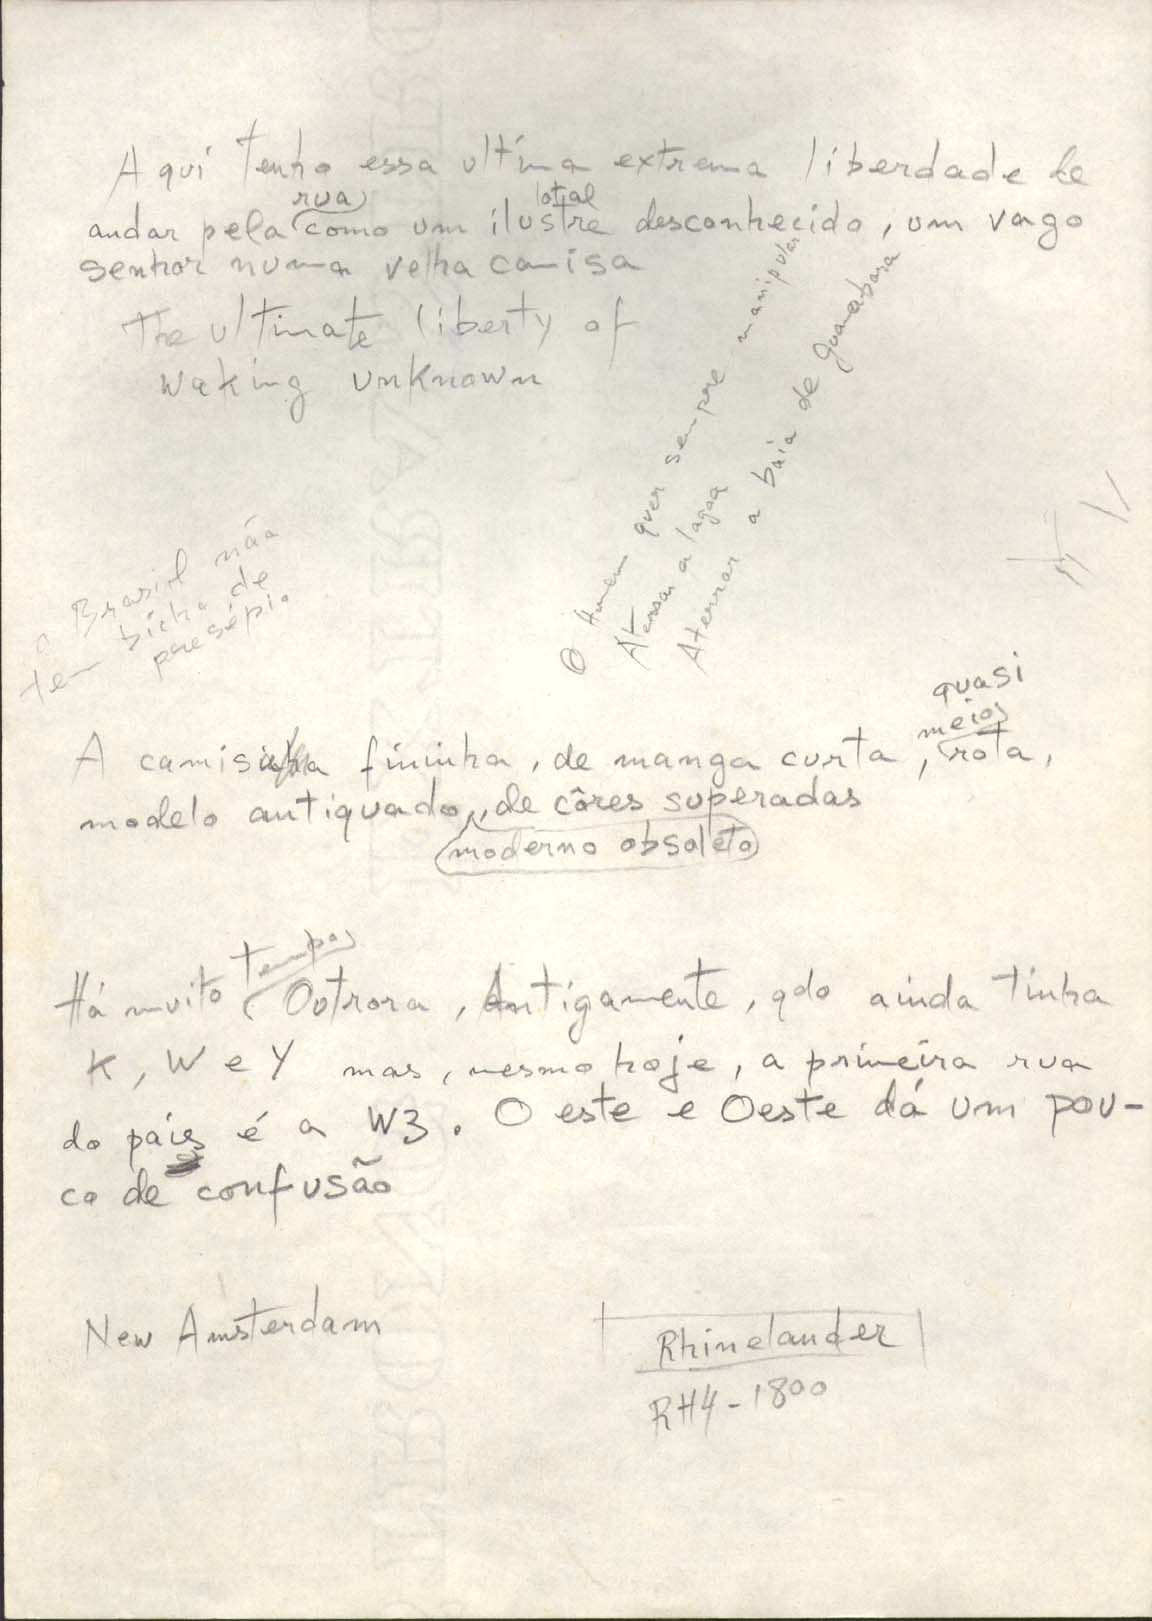 Aqui tenho essa ultima extrema liberdade de
rua total
andar pela como um ilustre desconhecido, um vago
senhor numa velha camisa
The ultimate liberty of
waking unknown
O homem quer sempre manipular
Aterrar a lagoa
Aterrar a baia de Guanabara
O Brasil não
tem bicho de
presépio.
quasi
meio
A camisinha fininha, de manga curta, rota,
modelo antiquado, de côres superadas
moderno obsoleto
tempo
Há muito Outrora, Antigamente, qdo ainda tinha
K, W e Y mas, mesmo hoje, a primeira rua
do país é a W3. O este e Oeste dá um pou-
co de confusão
New Amsterdam
Rhinelander
RH4-1800